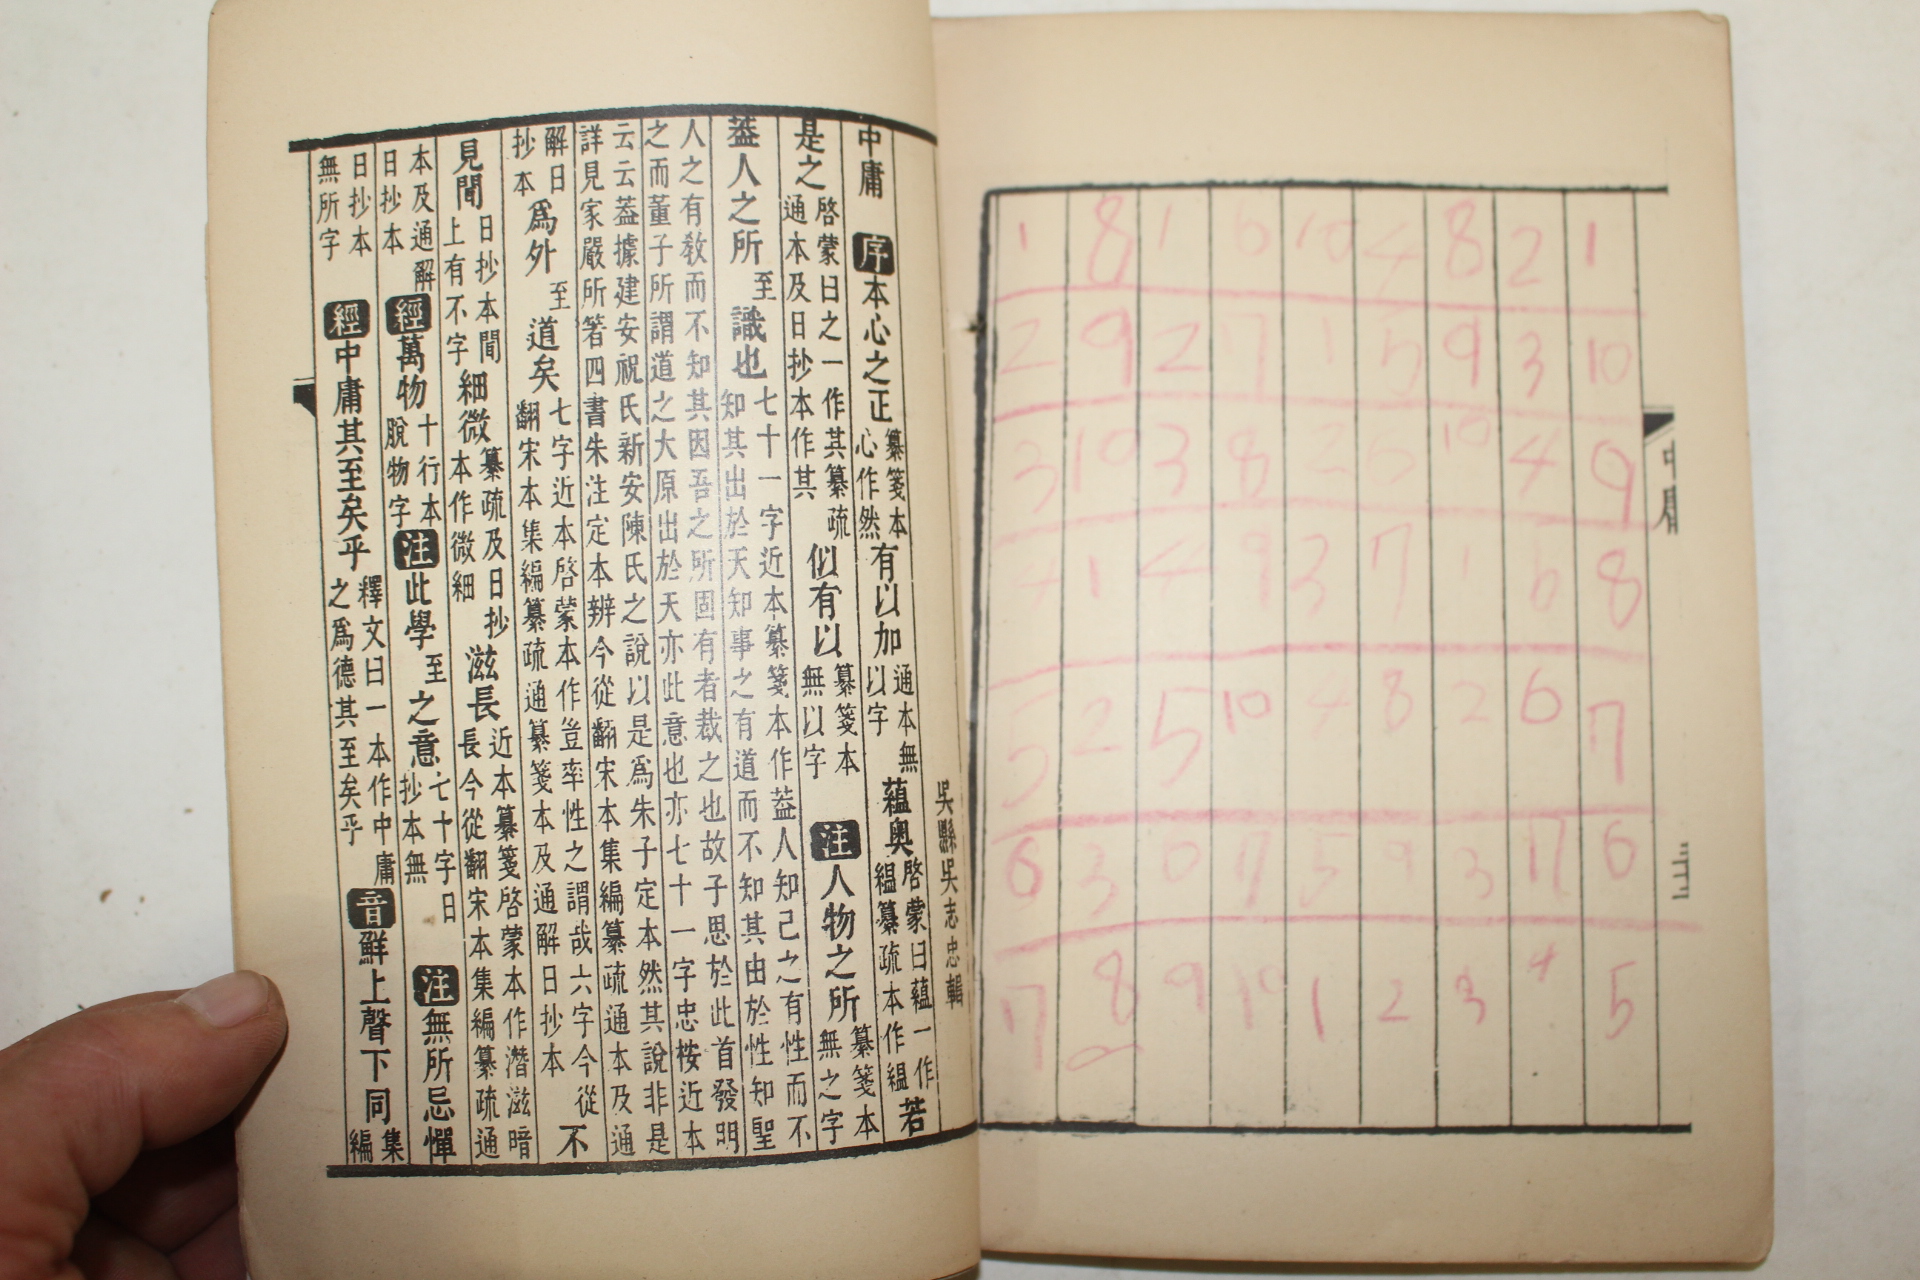 1 8 1 6 10 4 8 2 1
2 9 2 7 1 5 9 3 10
3 10 3 8 2 6 10 4 9
4 1 4 9 3 7 1 5 8
5 2 5 10 4 8 2 6 7
6 3 6 7 5 9 3 7 6
7 8 9 10 1 2 3 4 5
中庸
三
吳縣吳志忠輯
中庸 序本心之正纂箋本心作然有以加通本無以字蘊奥啓蒙曰蘊一作緼纂疏本作緼若
是之啓蒙曰之一作其纂疏通本及日抄本作其似有以纂箋本無以字 注人物之所纂箋本無之字
葢人之所至識也七十一字近本纂箋本作葢人知己之有性而不知其出於天知事之有道而不知其由於性知聖
人之有敎而不知其因吾之所固有者裁之也故子思於此首發明之而董子所謂道之大原出於天亦此意也亦七十一字忠桉近本
云云葢據建安祝氏新安陳氏之說以是爲朱子定本然其說非是詳見家嚴所箸四書朱注定本辨今從翻宋本集編纂疏通本及通
解日抄本爲外至道矣七字近本啓蒙本作豈率性之謂哉六字今從翻宋本集編纂疏通纂箋本及通解日抄本不
見聞日抄本間上有不字細微纂疏及日抄本作微細滋長近本纂箋啓蒙本作潛滋暗長今從翻宋本集編纂疏通
本及通解日抄本 經萬物十行本脫物字注此學至之意七十字日抄本無 注無所忌憚
日抄本無所字 經中庸其至矣乎釋文曰一本作中庸之爲德其至矣乎 音鮮上聲下同集編